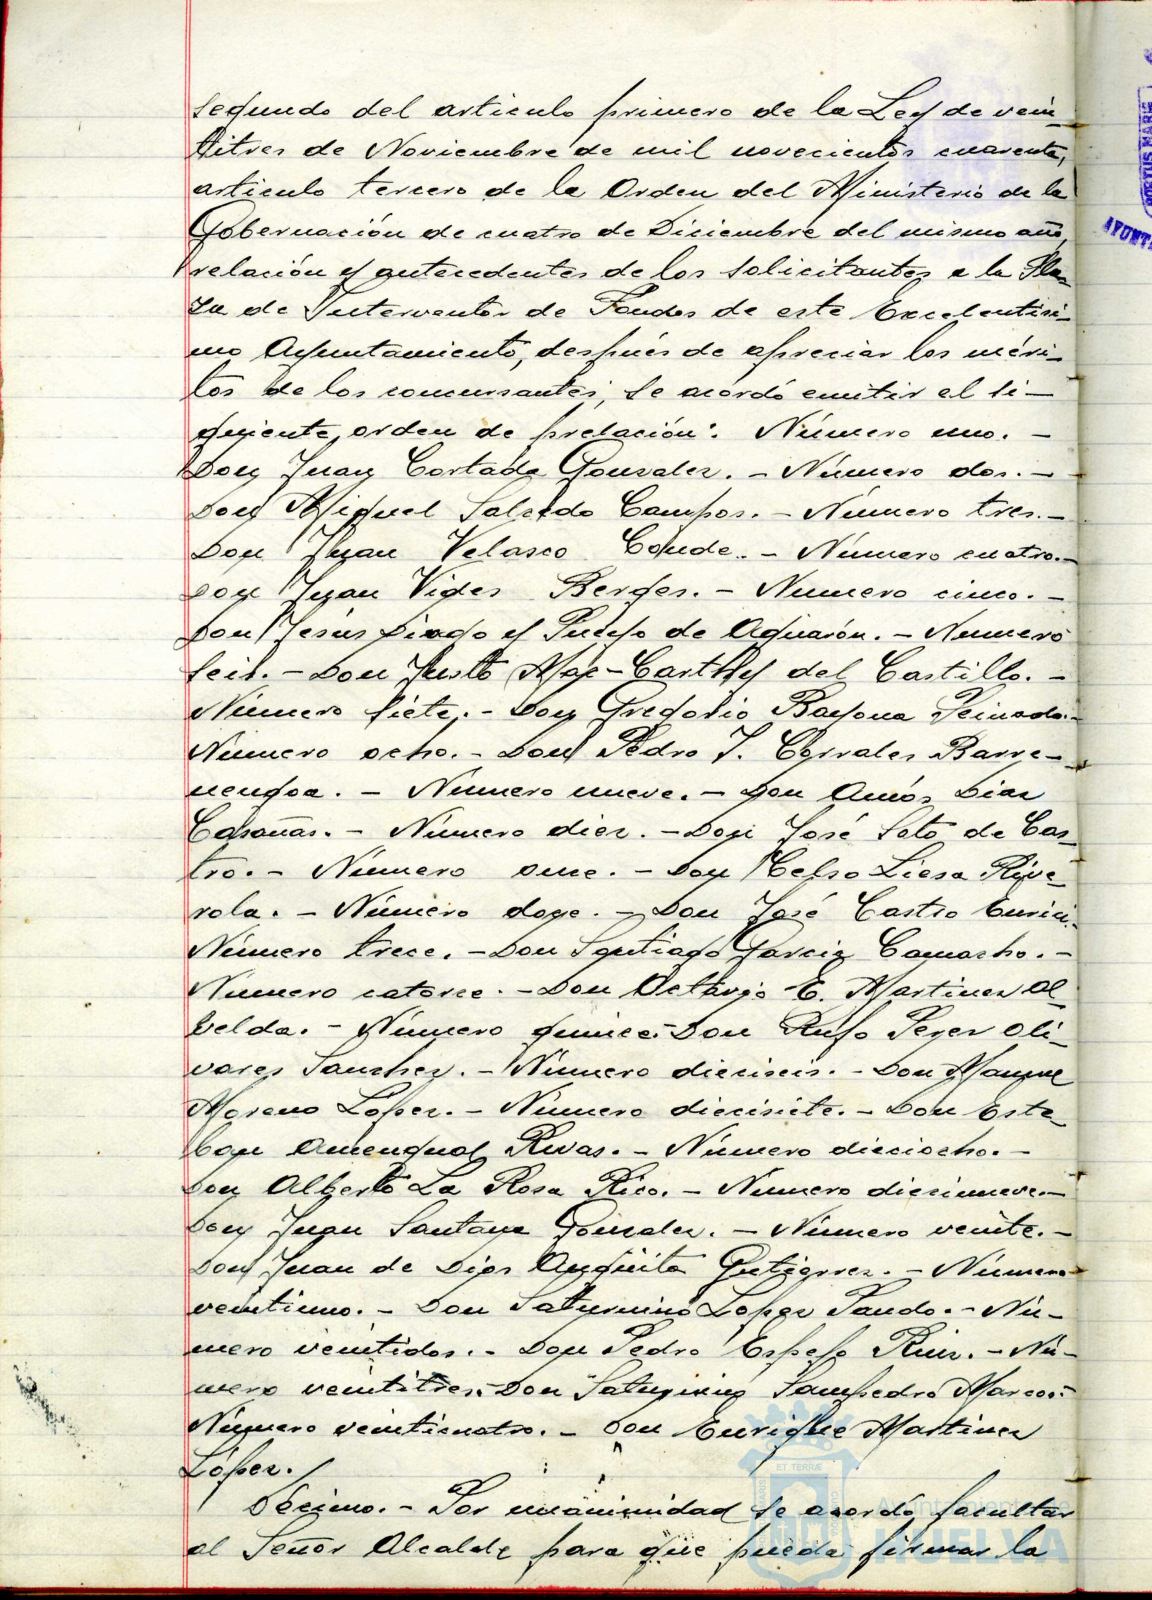 segundo del articulo primero de la Ley de vein-
titres de Noviembre de mil novecientos cuarenta,
articulo tercero de la Orden del Ministerio de la
Gobernación de cuatro de Diciembre del mismo año,
relación y antecedentes de los solicitantes a la Pla-
za de Interventor de Fondos de este Excelentisi-
mo Ayuntamiento, después de apreciar los méri-
tos de los concursantes, se acordó emitir el si-
guiente orden de prelación: Número uno. -
Don Juan Cortada Gonzalez. - Número dos. -
Don Miguel Salcedo Campos. - Número tres. -
Don Juan Velasco Conde. - Número cuatro. -
Don Juan Vides Berges. - Numero cinco. -
Don Jesús y Pueyo de Aguarón. - Numero
seis. - Don Justo Mac-Carthy del Castillo. -
Número siete. - Don Gregorio Bayona Peinado. -
Número ocho. - Don Pedro J. Corrales Barre-
nengoa. - Número nueve. - Don Amós Diaz
Casañas. - Número diez. - Don José Soto de Cas-
tro. - Número once. - Don Celso Liesa Rive-
rola. - Número doce. - Don José Castro
Número trece. - Don Santiago Garcia Camacho. -
Numero catorce. - Don Octavio E. Martinez Al-
belda. - Número quince. - Don Rufo Perez Oli-
vares Sanchez. - Número dieciseis. - Don Manuel
Moreno López. - Número diecisiete. - Don Este-
ban Amengual Rivas. - Número dieciocho. -
Don Alberto La Rosa Rico. - Número diecinueve. -
Don Juan Santana Gonzalez. - Número veinte. -
Don Juan de Dios Anguita Gutierrez. - Número
veintiuno. - Don Saturnino Lopez Pando. - Nú-
mero veintidos. - Don Pedro Espejo Ruiz. - Nú-
mero veintitres. - Don Saturnino Sampedro Marcos. -
Número veinticuatro. - Don Enrique Martinez
López.
Décimo. - Por unanimidad se acordó facultar
al Señor Alcalde para que pueda firmar la
PORTUS MARIS
AYUNT
ET TERRÆ
Ayuntamiento de
HUELVA